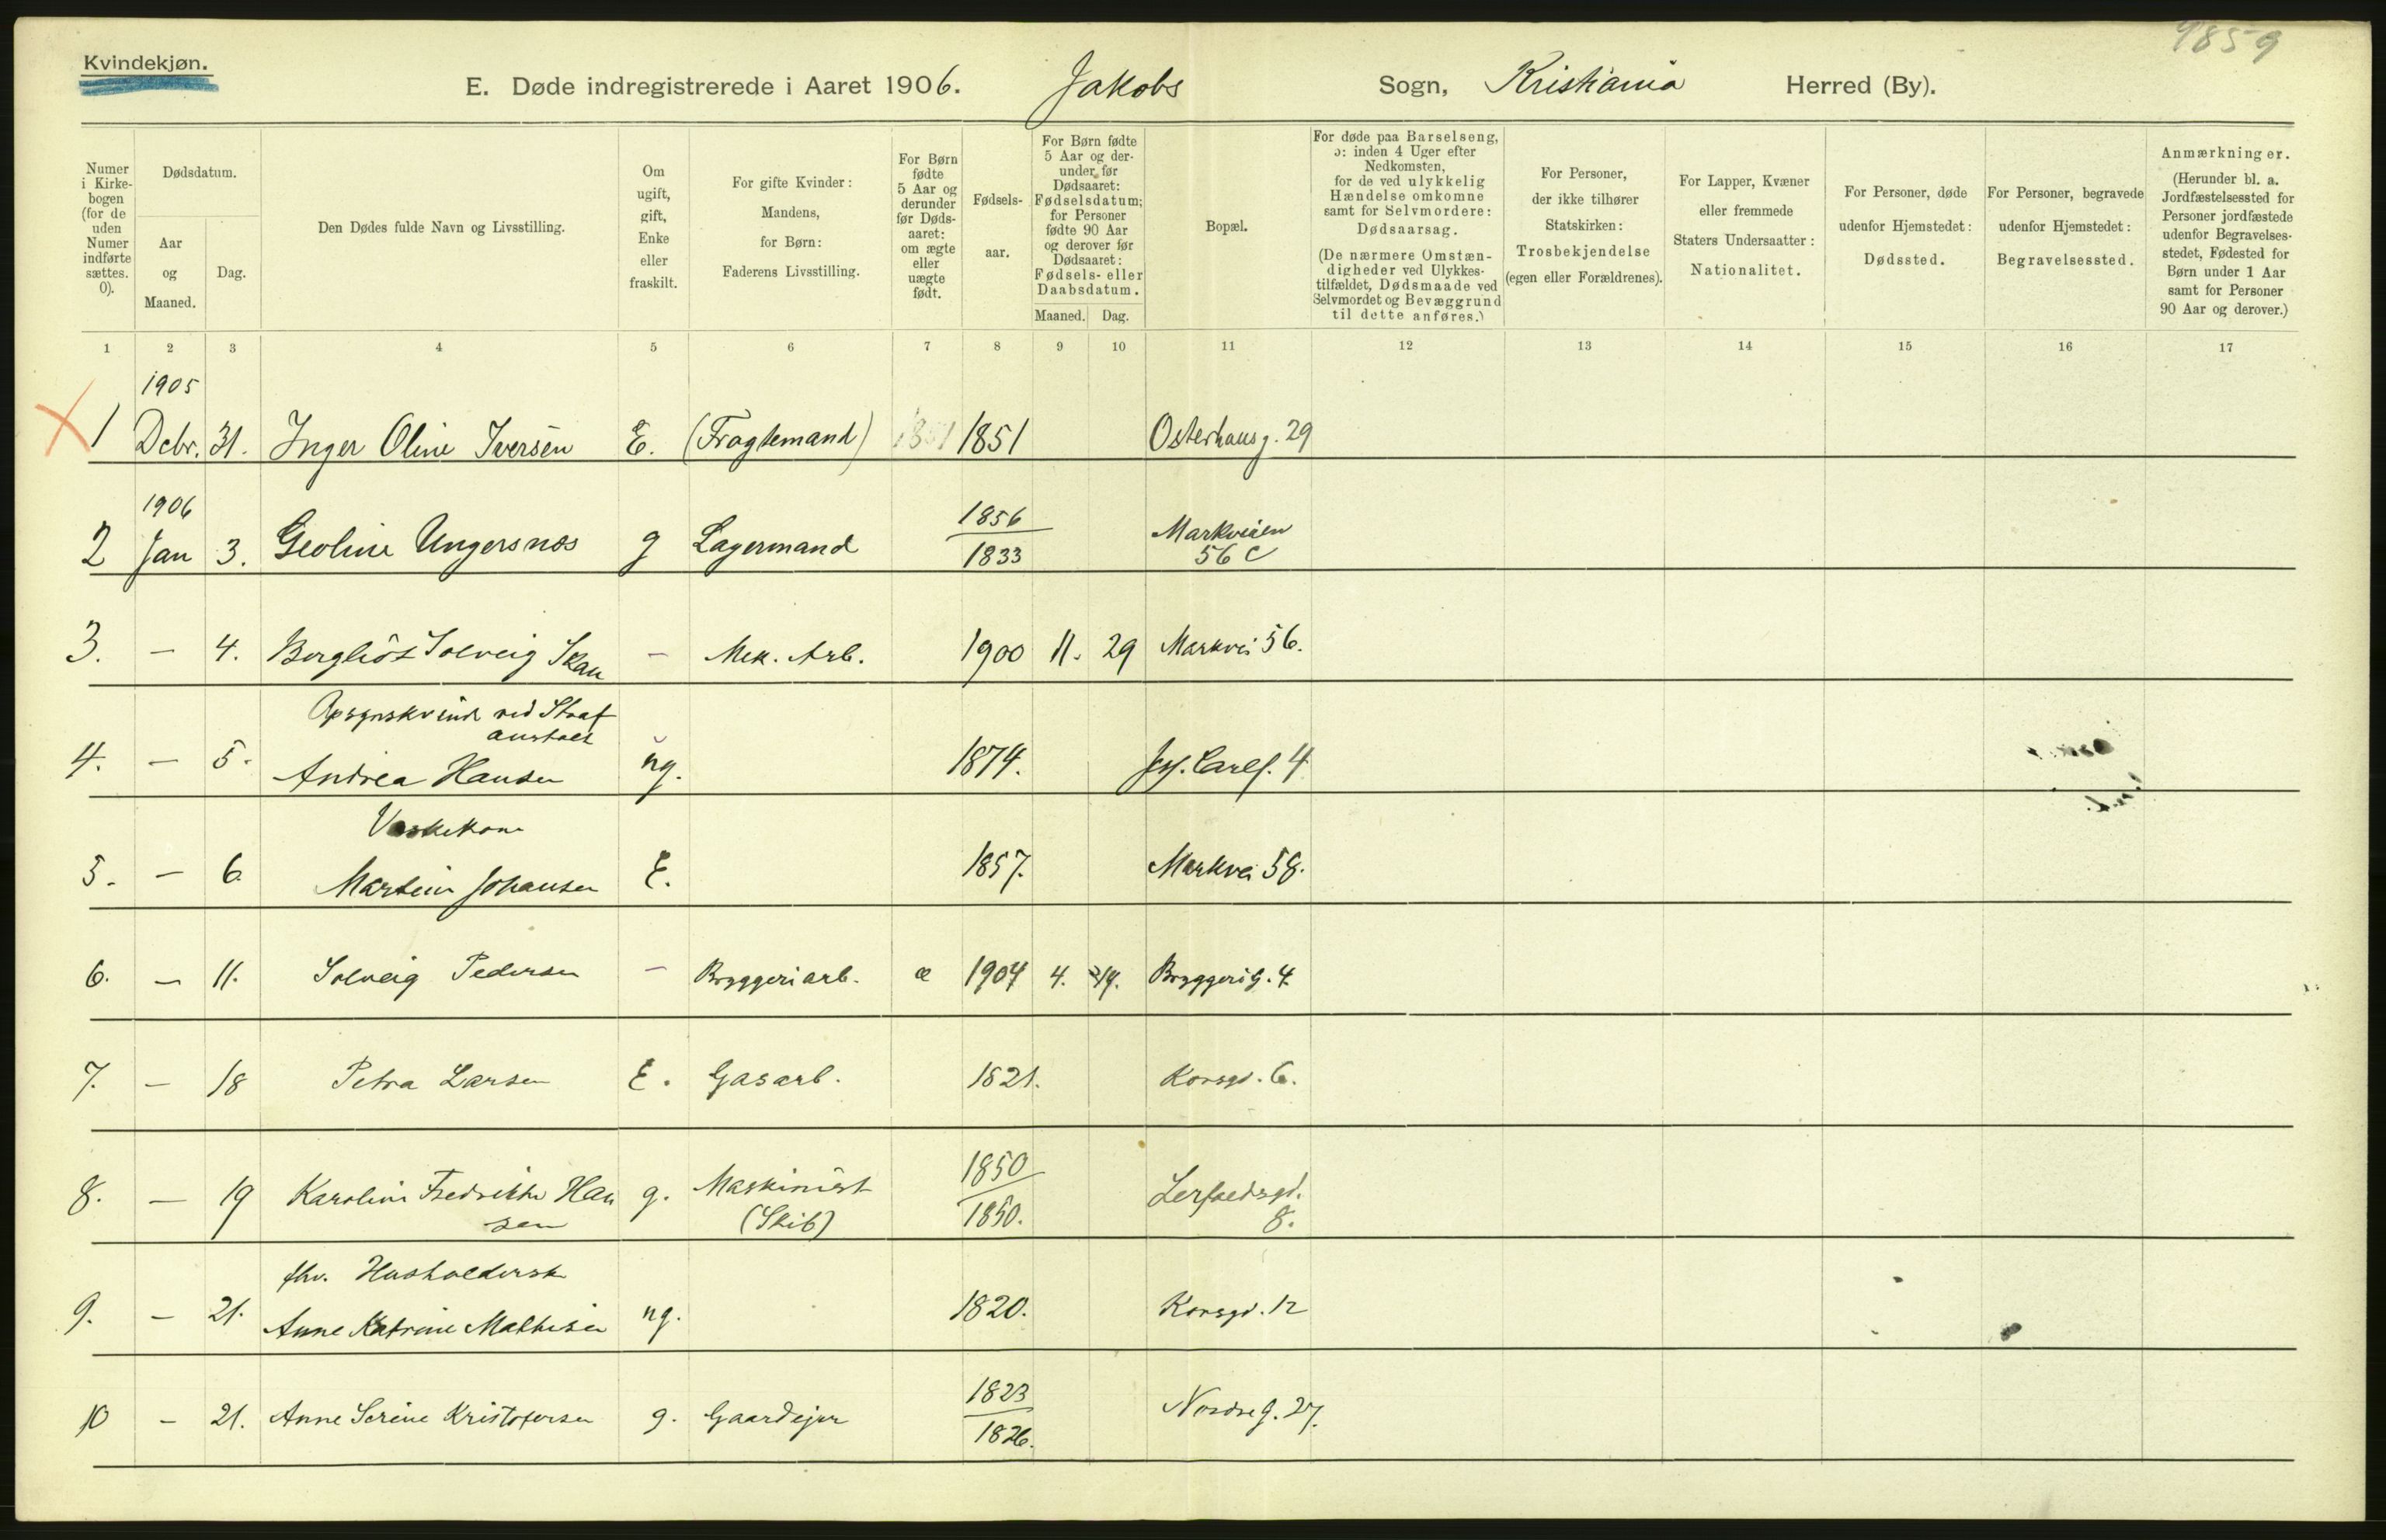 9859
Kvindekjøn.
E. Døde indregistrerede i Aaret 1906. Jakobs Sogn, Kristiania Herred (By).
Numer i Kirkebogen (for de uden Numer indførte sættes. 0).
Dødsdatum.
Aar og Maaned.
Dag.
Den Dødes fulde Navn og Livsstilling.
Om ugift, gift, Enke eller fraskilt.
For gifte Kvinder: Mandens, for Børn: Faderens Livsstilling.
For Børn fødte 5 Aar og derunder før Dødsaaret: om ægte eller uægte født.
Fødselsaar.
For Børn fødte 5 Aar og derunder før Dødsaaret: Fødselsdatum; for Personer fødte 90 Aar og derover før Dødsaaret: Fødsels- eller Daabsdatum.
Maaned. Dag.
Bopæl.
For døde paa Barselseng, ɔ: inden 4 Uger efter Nedkomsten, for de ved ulykkelig Hændelse omkomne samt for Selvmordere: Dødsaarsag.
(De nærmere Omstændigheder ved Ulykkestilfældet, Dødsmaade ved Selvmordet og Bevæggrund til dette anføres.)
For Personer, der ikke tilhører Statskirken: Trosbekjendelse (egen eller Forældrenes).
For Lapper, Kvæner eller fremmede Staters Undersaatter: Nationalitet.
For Personer, døde udenfor Hjemstedet: Dødssted.
For Personer, begravede udenfor Hjemstedet: Begravelsessted.
Anmærkninger. (Herunder bl. a. Jordfæstelsessted for Personer jordfæstede udenfor Begravelsesstedet, Fødested for Børn under 1 Aar samt for Personer 90 Aar og derover.)
1 2 3 4 5 6 7 8 9 10 11 12 13 14 15 16 17
1905
1 Dcbr. 31. Inger Oline Iversen E. (Fragtemand) 1851 1851 Osterhausg. 29
1906
2 Jan 3. Geoline Ungersnæs g Lagermand 1856 1833 Markveien 56 C
3. — 4. Bergliot Solveig Skau — Mek. Arb. 1900 11. 29 Markvei 56.
Opsynskvinde ved Straf
anstalt
4. — 5. Andrea Hansen ug. 1874. 4
Vaskekone
5. — 6. Martine Johansen E. 1857. Markvei 58.
6. — 11. Solveig Pedersen — Bryggeriarb. æ 1904 4. Bryggerig. 4.
7. — 18 Petra Larsen E. Gasarb. 1821. Korsgd. 6.
8. — 19 Karoline Fredrikke Han g. Maskinist 1850
sen (Skib) 1850. 8.
fhv. Husholderske
9. — 21. Anne Katrine Mathisen ug. 1820. Korsgd. 12
10 — 21. Anne Serine Kristofersen g. Gaardejer 1823 1826. Nordreg. 27.